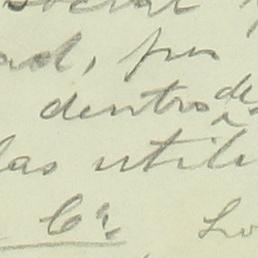 social
ad, pus
dentro de
las utili
Cª Lo